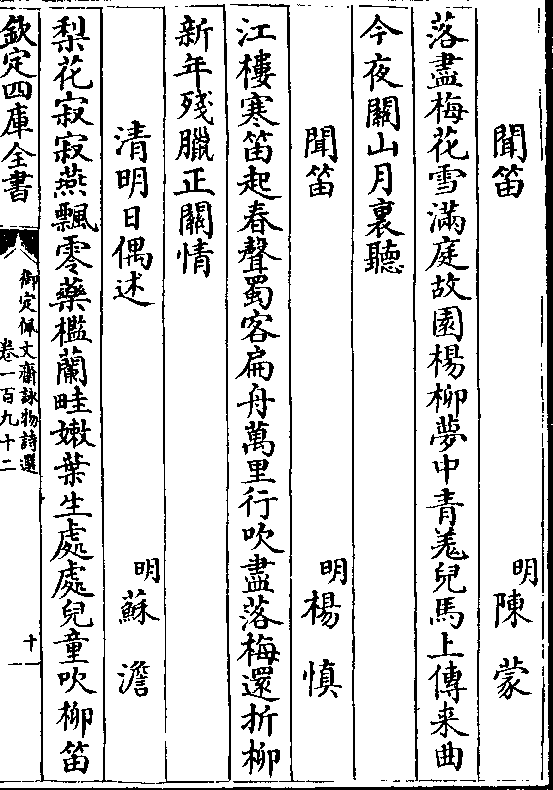 聞笛　明陳蒙
落盡梅花雪滿庭故園楊柳夢中青羗兒馬上傳来曲
今夜關山月裏聽
聞笛　明楊慎
江樓寒笛起春聲蜀客扁舟萬里行吹盡落梅還折柳
新年殘臘正關情
清明日偶述　明蘇澹
梨花寂寂燕飄零藥檻蘭畦嫩葉生處處兒童吹柳笛
欽定四庫全書
御定佩文齋詠物詩選
卷一百九十二
十